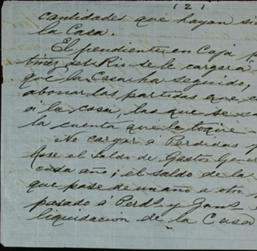 (2)
cantidades que hayan si
la Casa.
El pendiente en Caja
se le cargará
que la Casa ha seguido,
abonar las partidas que
a la casa, las que se
la cuenta que le toque
No cargar a Perdidas y
el Saldo de Gastos Gener
cada año; el saldo de la
que pase de un año a otro
pasado a Perds y Gans
liquidacion de la Casa